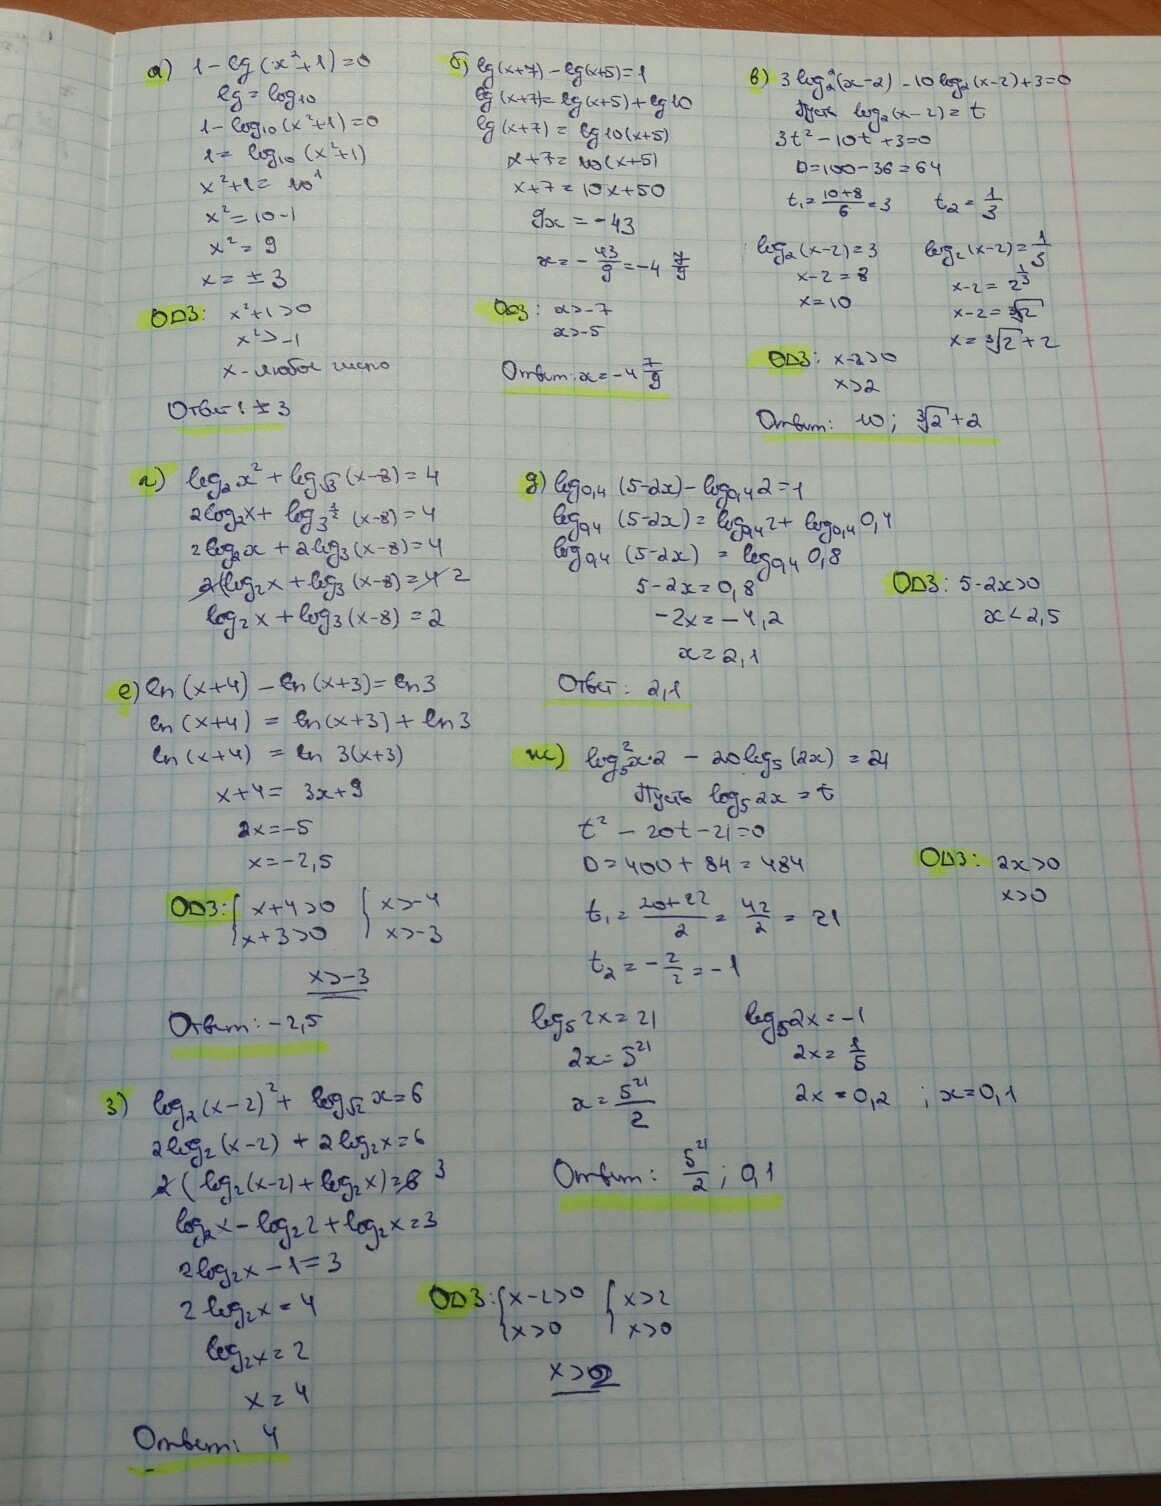 а) 1 - lg(x²+1)=0
lg = log₁₀
1 - log₁₀(x²+1)=0
1 = log₁₀(x²+1)
x²+1 = 10¹
x² = 10-1
x² = 9
x = ± 3
ОДЗ: x²+1>0
x²>-1
x - любое число
Ответ: ± 3
б) lg(x+7) - lg(x+5)=1
lg(x+7)= lg(x+5)+lg10
lg(x+7) = lg10(x+5)
x+7=10(x+5)
x+7=10x+50
9x = -43
x = -43/9 = -4 7/9
ОДЗ: x>-7
x>-5
Ответ: x = -4 7/9
в) 3log₂²(x-2) - 10log₂(x-2)+3=0
Пусть log₂(x-2) = t
3t² - 10t + 3=0
D=100-36 = 64
t₁= (10+8)/6 = 3 t₂ = 1/3
log₂(x-2)=3 log₂(x-2)=1/3
x-2=8 x-2 = 2^(1/3)
x=10 x-2 = ∛2
x = ∛2 + 2
ОДЗ: x-2>0
x>2
Ответ: 10; ∛2+2
г) log₂x² + log√3 (x-8) = 4
2log₂x + log₃^(1/2) (x-8)=4
2log₂x + 2log₃(x-8)=4
2(log₂x + log₃(x-8)=4 2
log₂x + log₃(x-8) = 2
д) log₀,₄ (5-2x) - log₀,₄2=1
log₀,₄ (5-2x) = log₀,₄2 + log₀,₄ 0,4
log₀,₄ (5-2x) = log₀,₄ 0,8
5-2x=0,8
-2x = -4,2
x = 2,1
ОДЗ: 5-2x>0
x < 2,5
Ответ: 2,1
е) ln(x+4) - ln(x+3)=ln3
ln(x+4) = ln(x+3) + ln3
ln(x+4) = ln 3(x+3)
x+4 = 3x+9
2x = -5
x = -2,5
ОДЗ: { x+4>0 { x>-4
{ x+3>0 { x>-3
x>-3
Ответ: -2,5
ж) log₅²x·2 - 20log₅(2x) = 21
Пусть log₅2x = t
t² - 20t - 21=0
D = 400 + 84 = 484
t₁ = (20+22)/2 = 42/2 = 21
t₂ = -2/2 = -1
ОДЗ: 2x>0
x>0
log₅2x = 21 log₅2x = -1
2x = 5²¹ 2x = 1/5
x = 5²¹/2 2x = 0,2 ; x=0,1
Ответ: 5²¹/2 ; 0,1
з) log₂(x-2)² + log√2 x = 6
2log₂(x-2) + 2log₂x = 6
2(log₂(x-2)+log₂x)=6 3
log₂x - log₂2 + log₂x = 3
2log₂x - 1 = 3
2log₂x = 4
log₂x = 2
x = 4
ОДЗ: { x-2>0 { x>2
{ x>0 { x>0
x>2
Ответ: 4